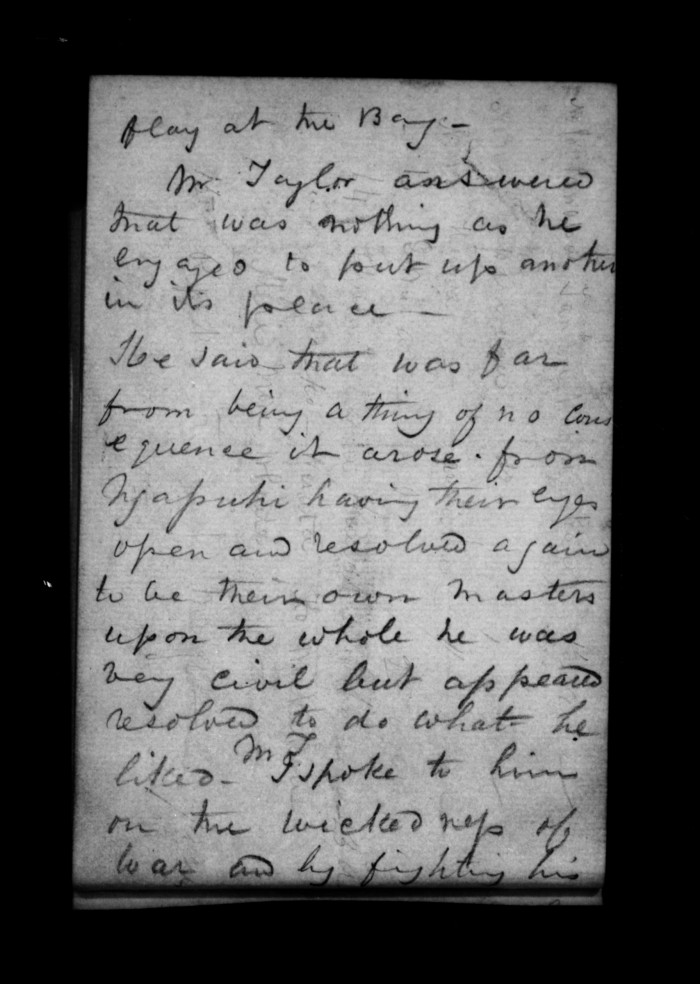 play at the Bay -
Mr Taylor answered
that was nothing as he
engaged to put up another
in its place -
He said that was far
from being a thing of no cons
equence it arose from
Ngapuhi having their eyes
open and resolved again
to be their own masters
upon the whole he was
very civil but appeared
resolved to do what he
liked - Mr T
I spoke to him
on the wickedness of
war and by fighting his